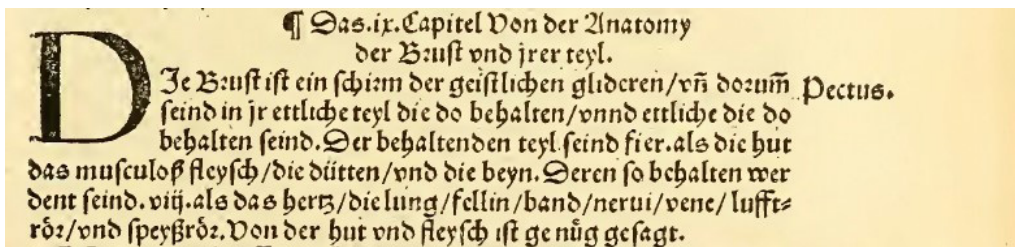 ¶ Das.ix.Capitel Von der Anatomy
der Brust vnd jrer teyl.
DJe Brust ist ein schirm der geistlichen glideren/vñ dorum̃ Pectus.
seind in jr ettliche teyl die do behalten/vnnd ettliche die do
behalten seind.Der behaltenden teyl seind fier.als die hut
das musculoß fleysch/die dütten/vnd die beyn.Deren so behalten wer
dent seind.viij.als das hertz/die lung/fellin/band/nerui/vene/lufft⸗
rör/vnd speyßrör.Von der hut vnd fleysch ist ge nůg gesagt.